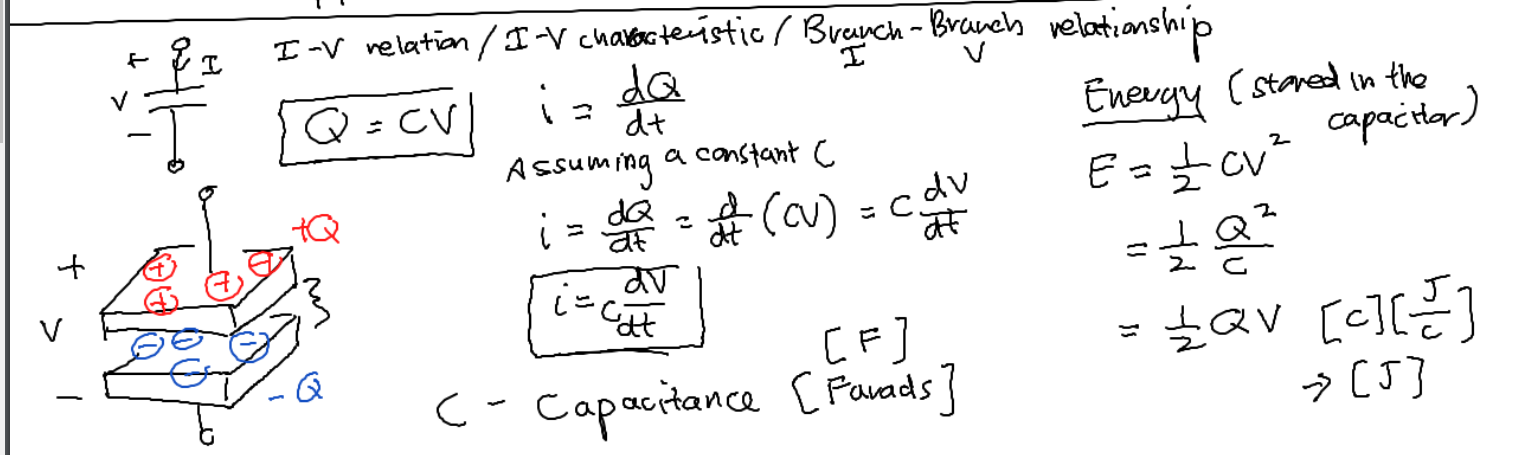 I-V relation / I-V characteristic / Branch-Branch relationship
I V
+ I
V
-
Q = CV
i = dQ/dt
Assuming a constant C
i = dQ/dt = d/dt (CV) = C dV/dt
i = C dV/dt
C - Capacitance [Farads]
[F]
+ +Q
+ + + +
V
- - - -
- -Q
Energy (stored in the
capacitor)
E = 1/2 CV²
= 1/2 Q²/C
= 1/2 QV [C][J/C]
→ [J]